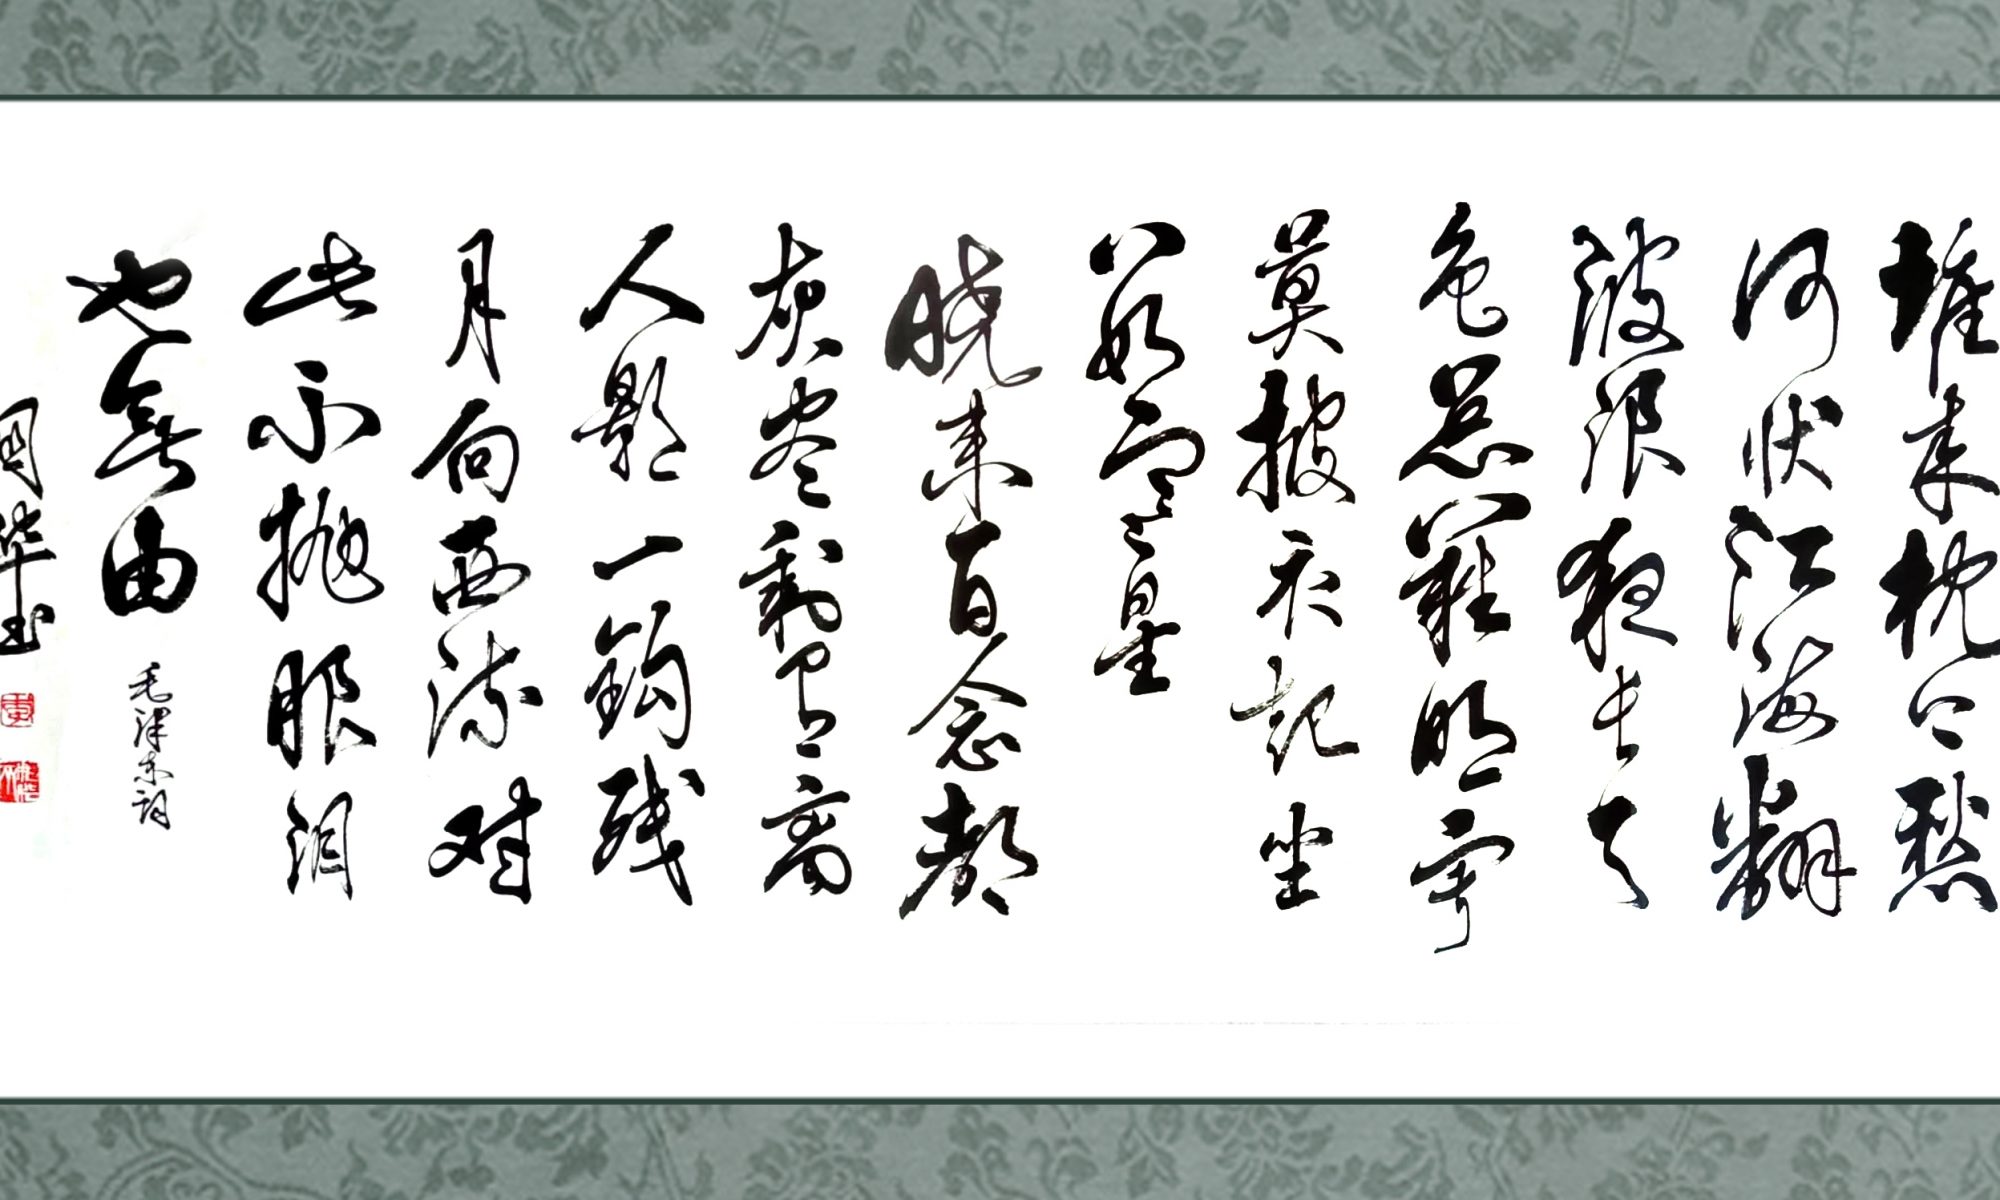 堆来枕上愁
何状江海翻
波浪夜长天
色总难明寂
寞披衣起坐
数寒星
晓来百念都
灰尽剩有离
人影一钩残
月向西流对
此不抛眼泪
也无由
毛泽东词
国华书